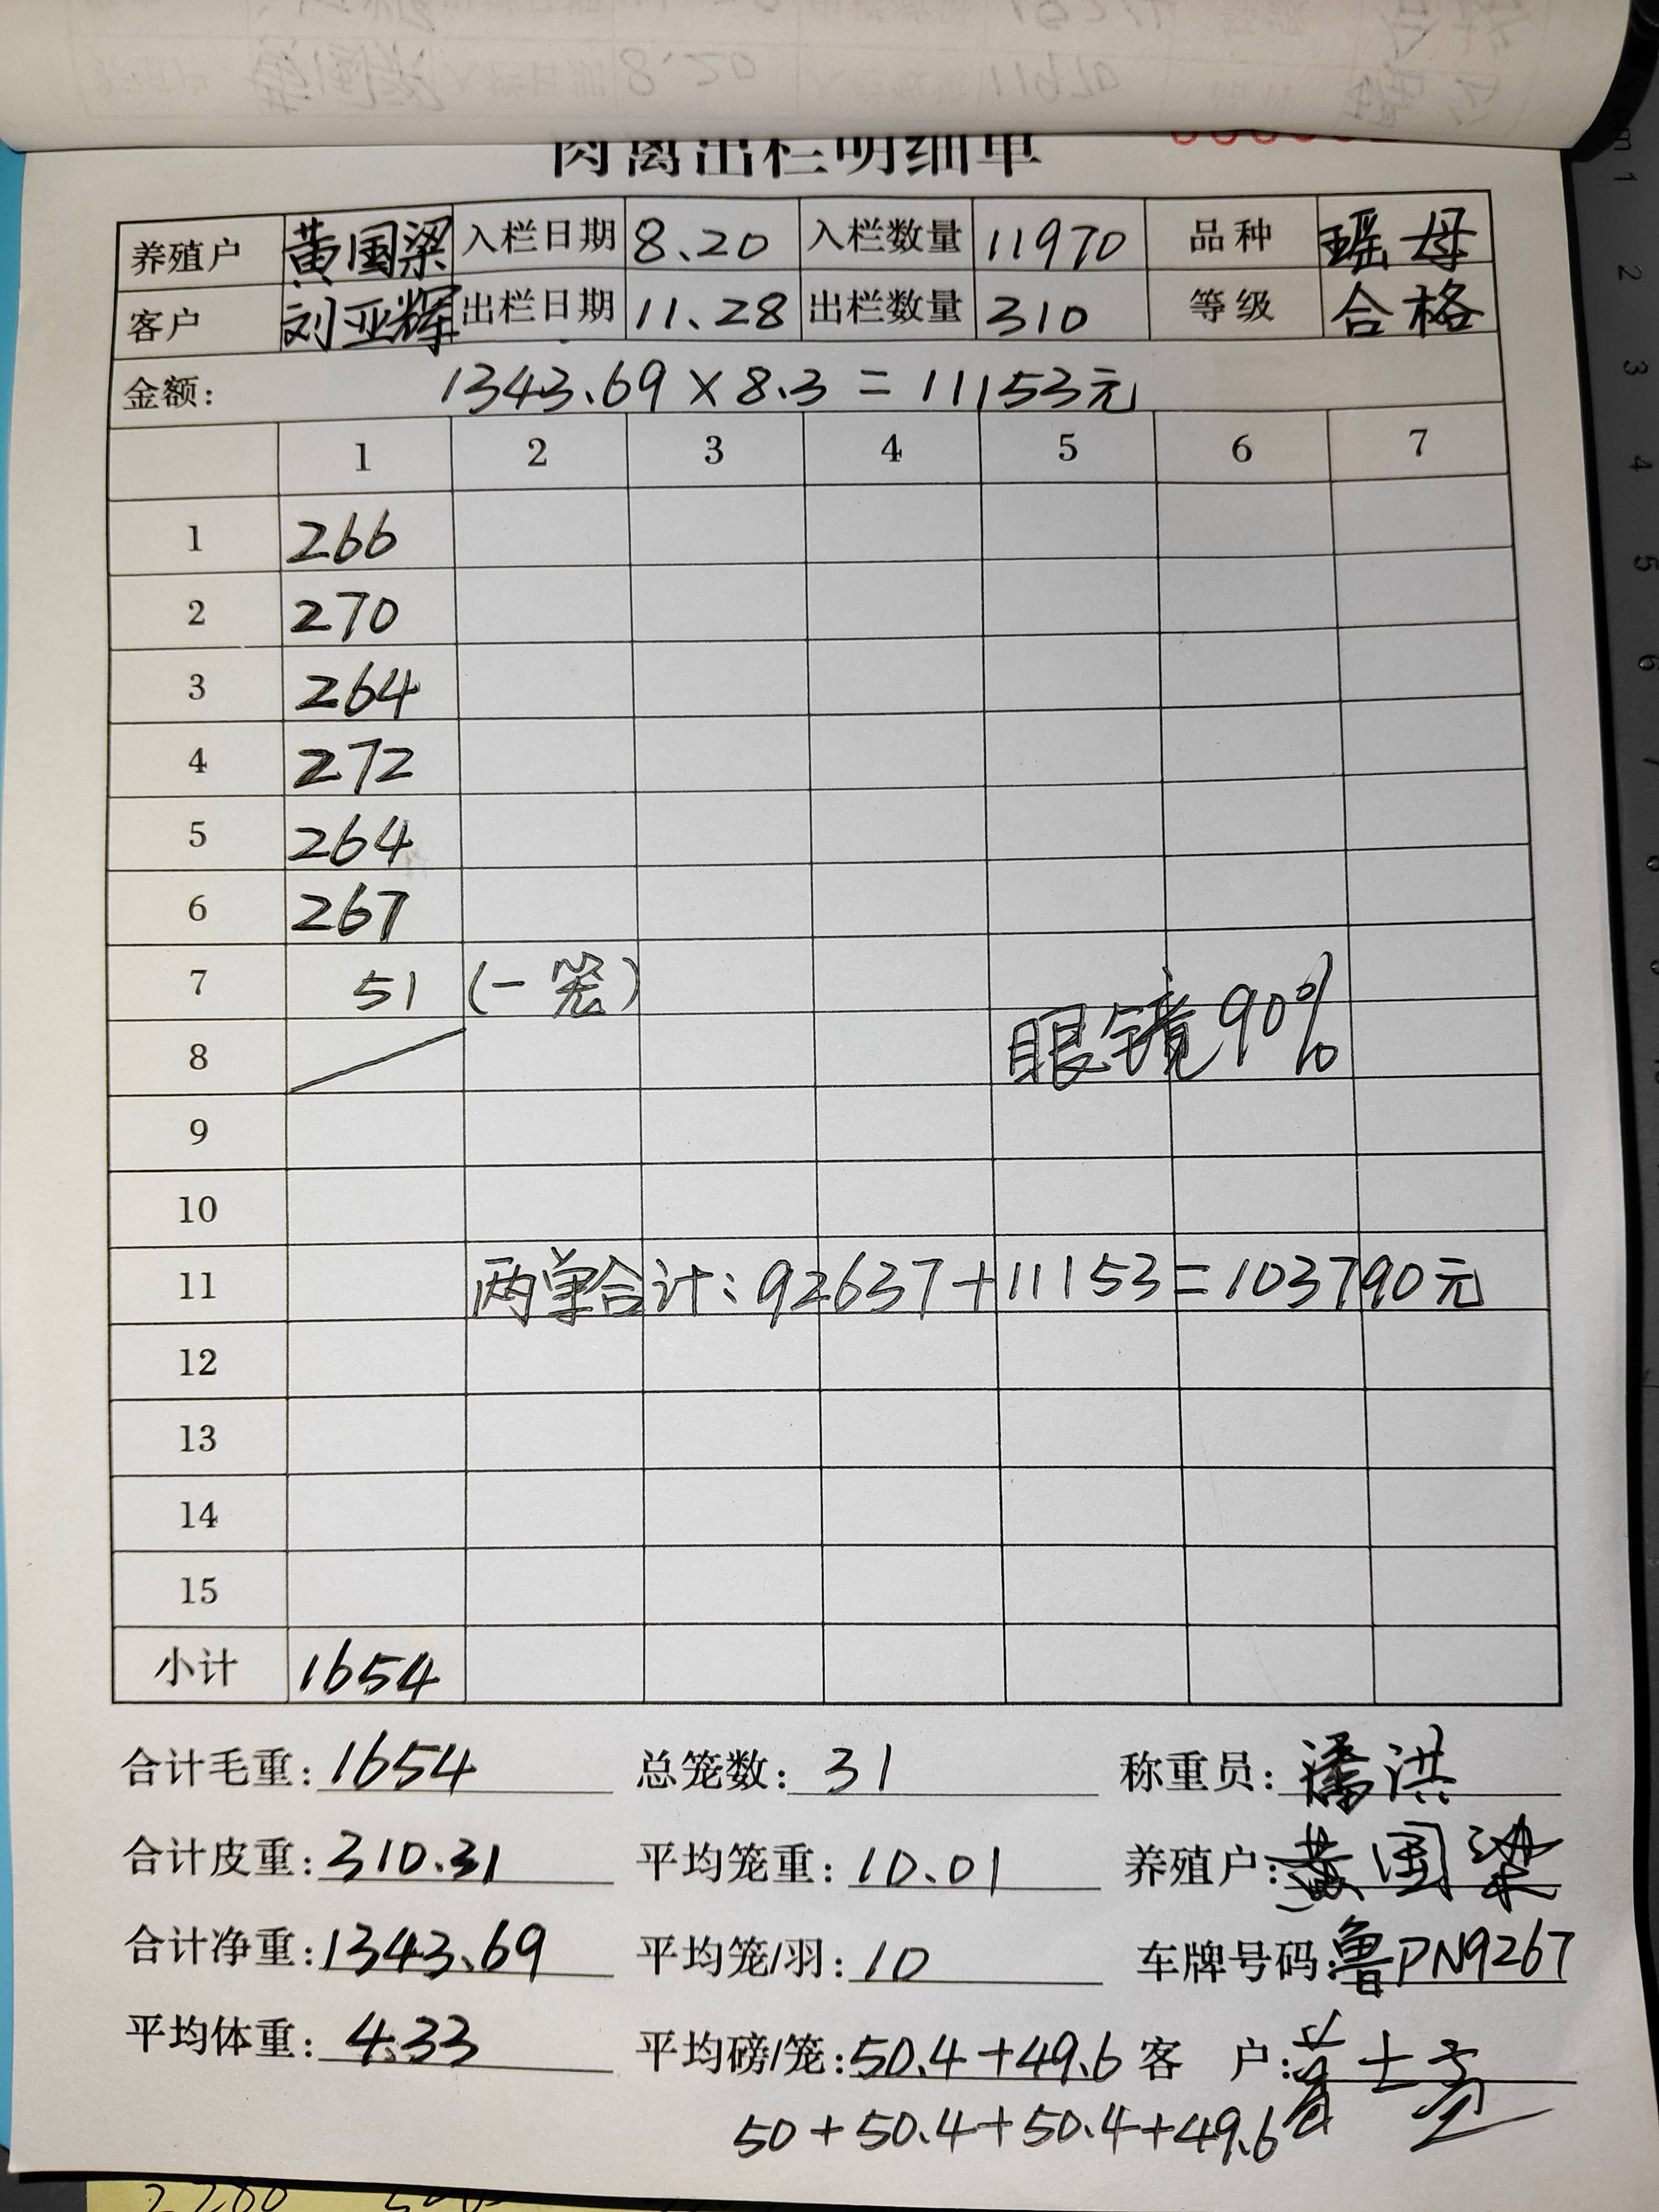 肉禽出栏明细单
养殖户 黄国梁 入栏日期 8.20 入栏数量 11970 品种 瑶母
客户 刘亚辉 出栏日期 11.28 出栏数量 310 等级 合格
金额: 1343.69 × 8.3 = 11153元
1 2 3 4 5 6 7
1 266
2 270
3 264
4 272
5 264
6 267
7 51 (一笼)
8 眼镜90%
9
10
11 两单合计: 92637+11153=103790元
12
13
14
15
小计 1654
合计毛重: 1654 总笼数: 31 称重员: 潘洪
合计皮重: 310.31 平均笼重: 10.01 养殖户: 黄国梁
合计净重: 1343.69 平均笼/羽: 10 车牌号码: 鲁PN9267
平均体重: 4.33 平均磅/笼: 50.4+49.6 客 户:
50+50.4+50.4+49.6